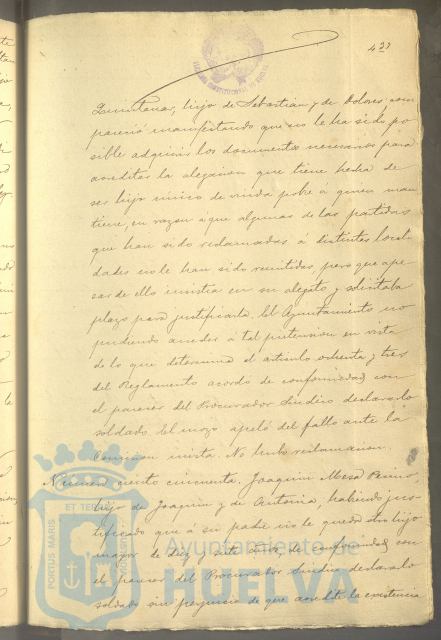 423
Quintana, hijo de Sebastián y de Dolores, com
pareció manifestando que no le ha sido po
sible adquirir los documentos necesarios para
acreditar la alegacion que tiene hecha de
ser hijo único de viuda pobre á quien man
tiene, en razon á que algunas de las partidas
que han sido reclamadas á distintas locali
dades no le han sido remitidas, pero que ape
sar de ello insistia en su alegato y solicitaba
plazo para justificarla. El Ayuntamiento no
pudiendo acceder á tal pretension en vista
de lo que determina el articulo ochenta y tres
del Reglamento acordó de conformidad con
el parecer del Procurador Sindico declararlo
soldado. El mozo apeló del fallo ante la
Comision mixta. No hubo reclamacion.
Número ciento cincuenta. Joaquin Mesa
hijo de Joaquin y de Antonia, habiendo jus
tificado que á su padre no le queda otro hijo
mayor de diez y siete años, de conformidad con
el parecer del Procurador Sindico declararlo
soldado sin perjuicio de que acredite la existencia
PORTUS MARIS ET TERRÆ
Ayuntamiento de
HUELVA